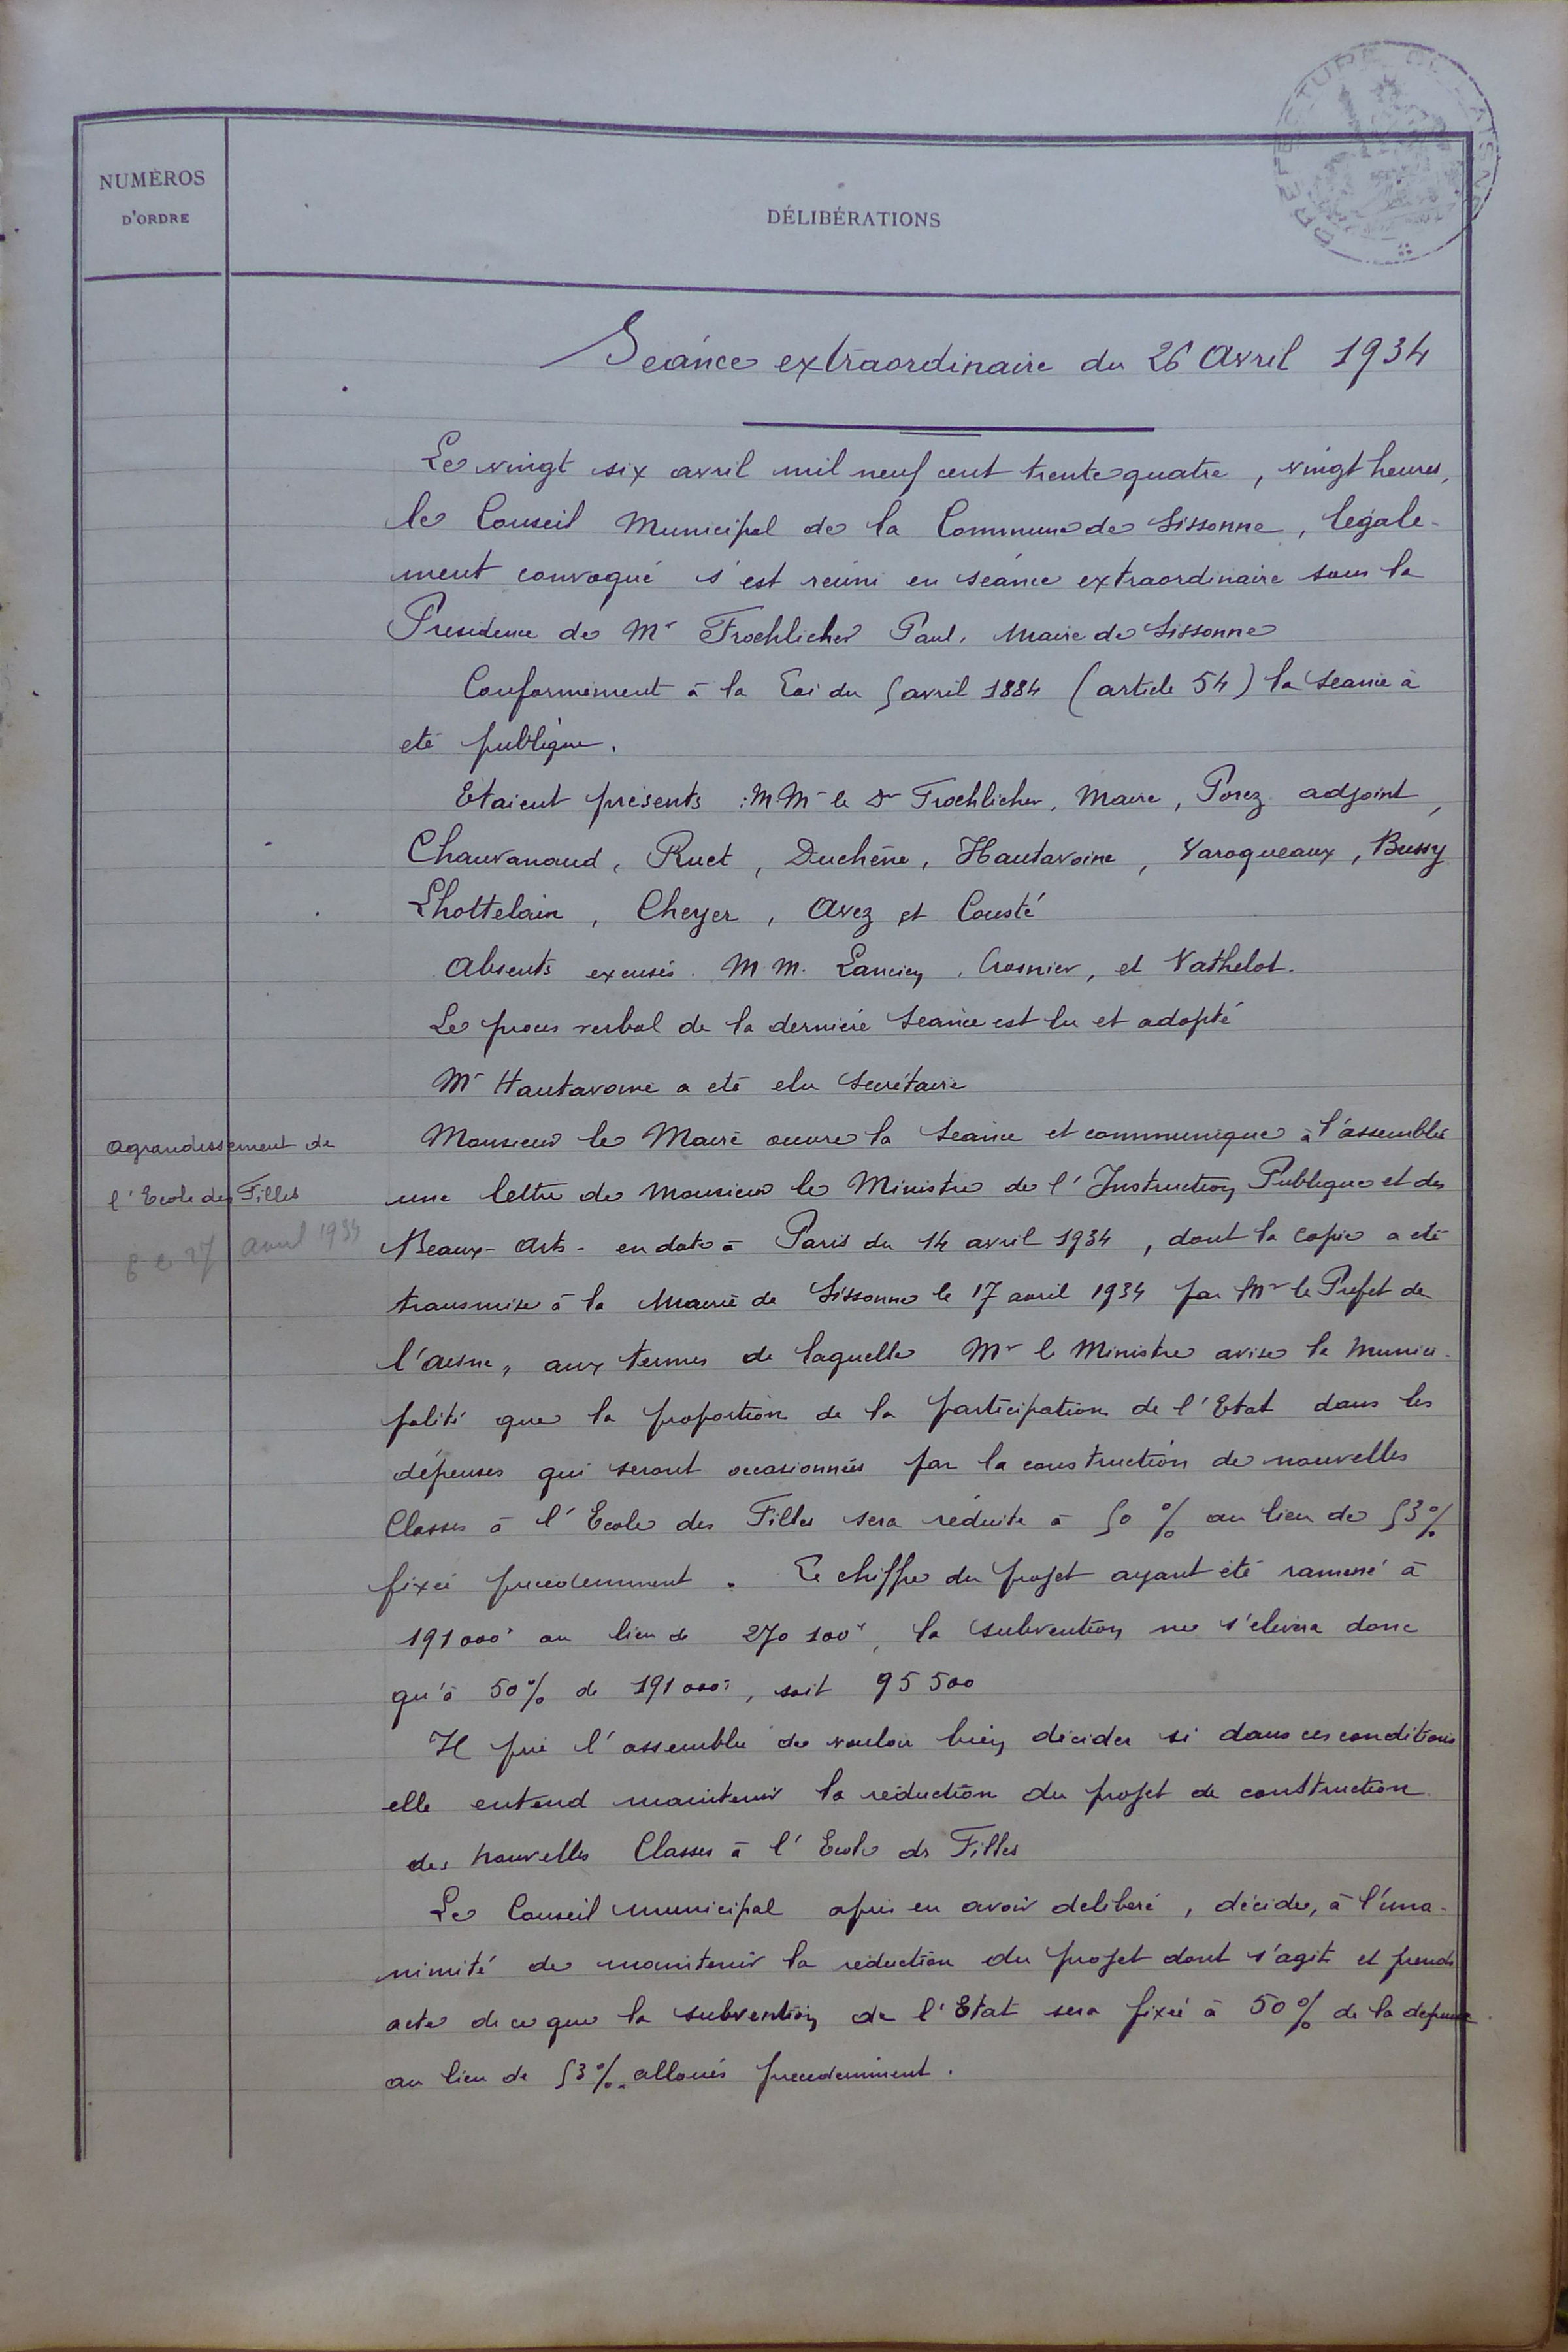 PRÉFECTURE DE L'AISNE
NUMÉROS
D'ORDRE
DÉLIBÉRATIONS
Séance extraordinaire du 26 Avril 1934
Le vingt six avril mil neuf cent trente quatre, vingt heures,
le Conseil Municipal de la Commune de Sissonne, légale-
ment convoqué s'est réuni en séance extraordinaire sous la
Présidence de Mr Froehlicher Paul, Maire de Sissonne
Conformément à la Loi du 5 avril 1884 (article 54) la séance à
eté publique.
Etaient présents : MMrs le Dr Froehlicher, Maire, Porez adjoint,
Chauvanaud, Ruet, Duchêne, Hautavoine, Varoqueaux, Bussy
Lhottelain, Cheyer, Avez et Cousté
Absents excusés. M M. Lancien, Crosnier, et Vathelot.
Le proces verbal de la dernière séance est lu et adopté
Mr Hautavoine a eté elu secrétaire
Agrandissement de
l'Ecole des Filles
27 avril 1934
Monsieur le Maire ouvre la séance et communique à l'assemblée
une lettre de Monsieur le Ministre de l'Instruction Publique et des
Beaux-Arts - en date à Paris du 14 avril 1934, dont la copie a eté
transmise à la Mairie de Sissonne le 17 avril 1934 par Mr le Prefet de
l'aisne, aux termes de laquelle Mr le Ministre avise la Munici-
palité que la proportion de la participation de l'Etat dans les
dépenses qui seront occasionnées par la construction de nouvelles
Classes à l'Ecole des Filles sera réduite à 50 % au lieu de 53 %
fixée precedemment. Le chiffre du projet ayant été ramené à
191 000f au lieu de 270 100f, la subvention ne s'elevera donc
qu'à 50 % de 191 000f, soit 95 500
Il prie l'assemblée de vouloir bien décider si dans ces conditions
elle entend maintenir la réduction du projet de construction
des nouvelles Classes à l'Ecole des Filles
Le Conseil municipal après en avoir deliberé, décide, à l'una-
nimité de maintenir la réduction du projet dont s'agit et prends
acte de ce que la subvention de l'Etat sera fixée à 50 % de la depense
au lieu de 53 % alloués precedemment.